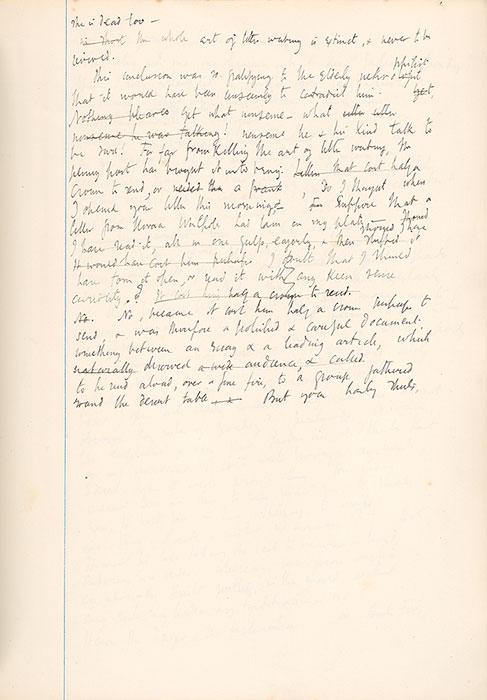 she is dead too —
in short the whole art of letter writing is extinct, & never to be
revived.
This conclusion was so gratifying to the elderly
that it would have been unseemly to contradict him.
Nothing Yet what nonsense — what utter utter
nonsense he was talking! nonsense he & his kind talk to
be sure! Far far from killing the art of letter writing, the
penny post has brought it into being. Letters that cost half a
crown to send, or needed a frank, So I thought when
I opened your letter this morning. Suppose that a
letter from Horace Walpole had lain on my plate,
I have read it, all in one gulp, eagerly, & then stuffed it
It would have cost him perhaps I doubt that I should
have torn it open, or read it with any keen sense
curiosity. It cost him half a crown to send.
No. No, because it cost him half a crown perhaps to
send & was therefore a polished & careful document.
something between an essay & a leading article, which
naturally deserved a wide audience, & could
to be read aloud, over a fine fire, to a group gathered
round the desert table But your hasty sheets,